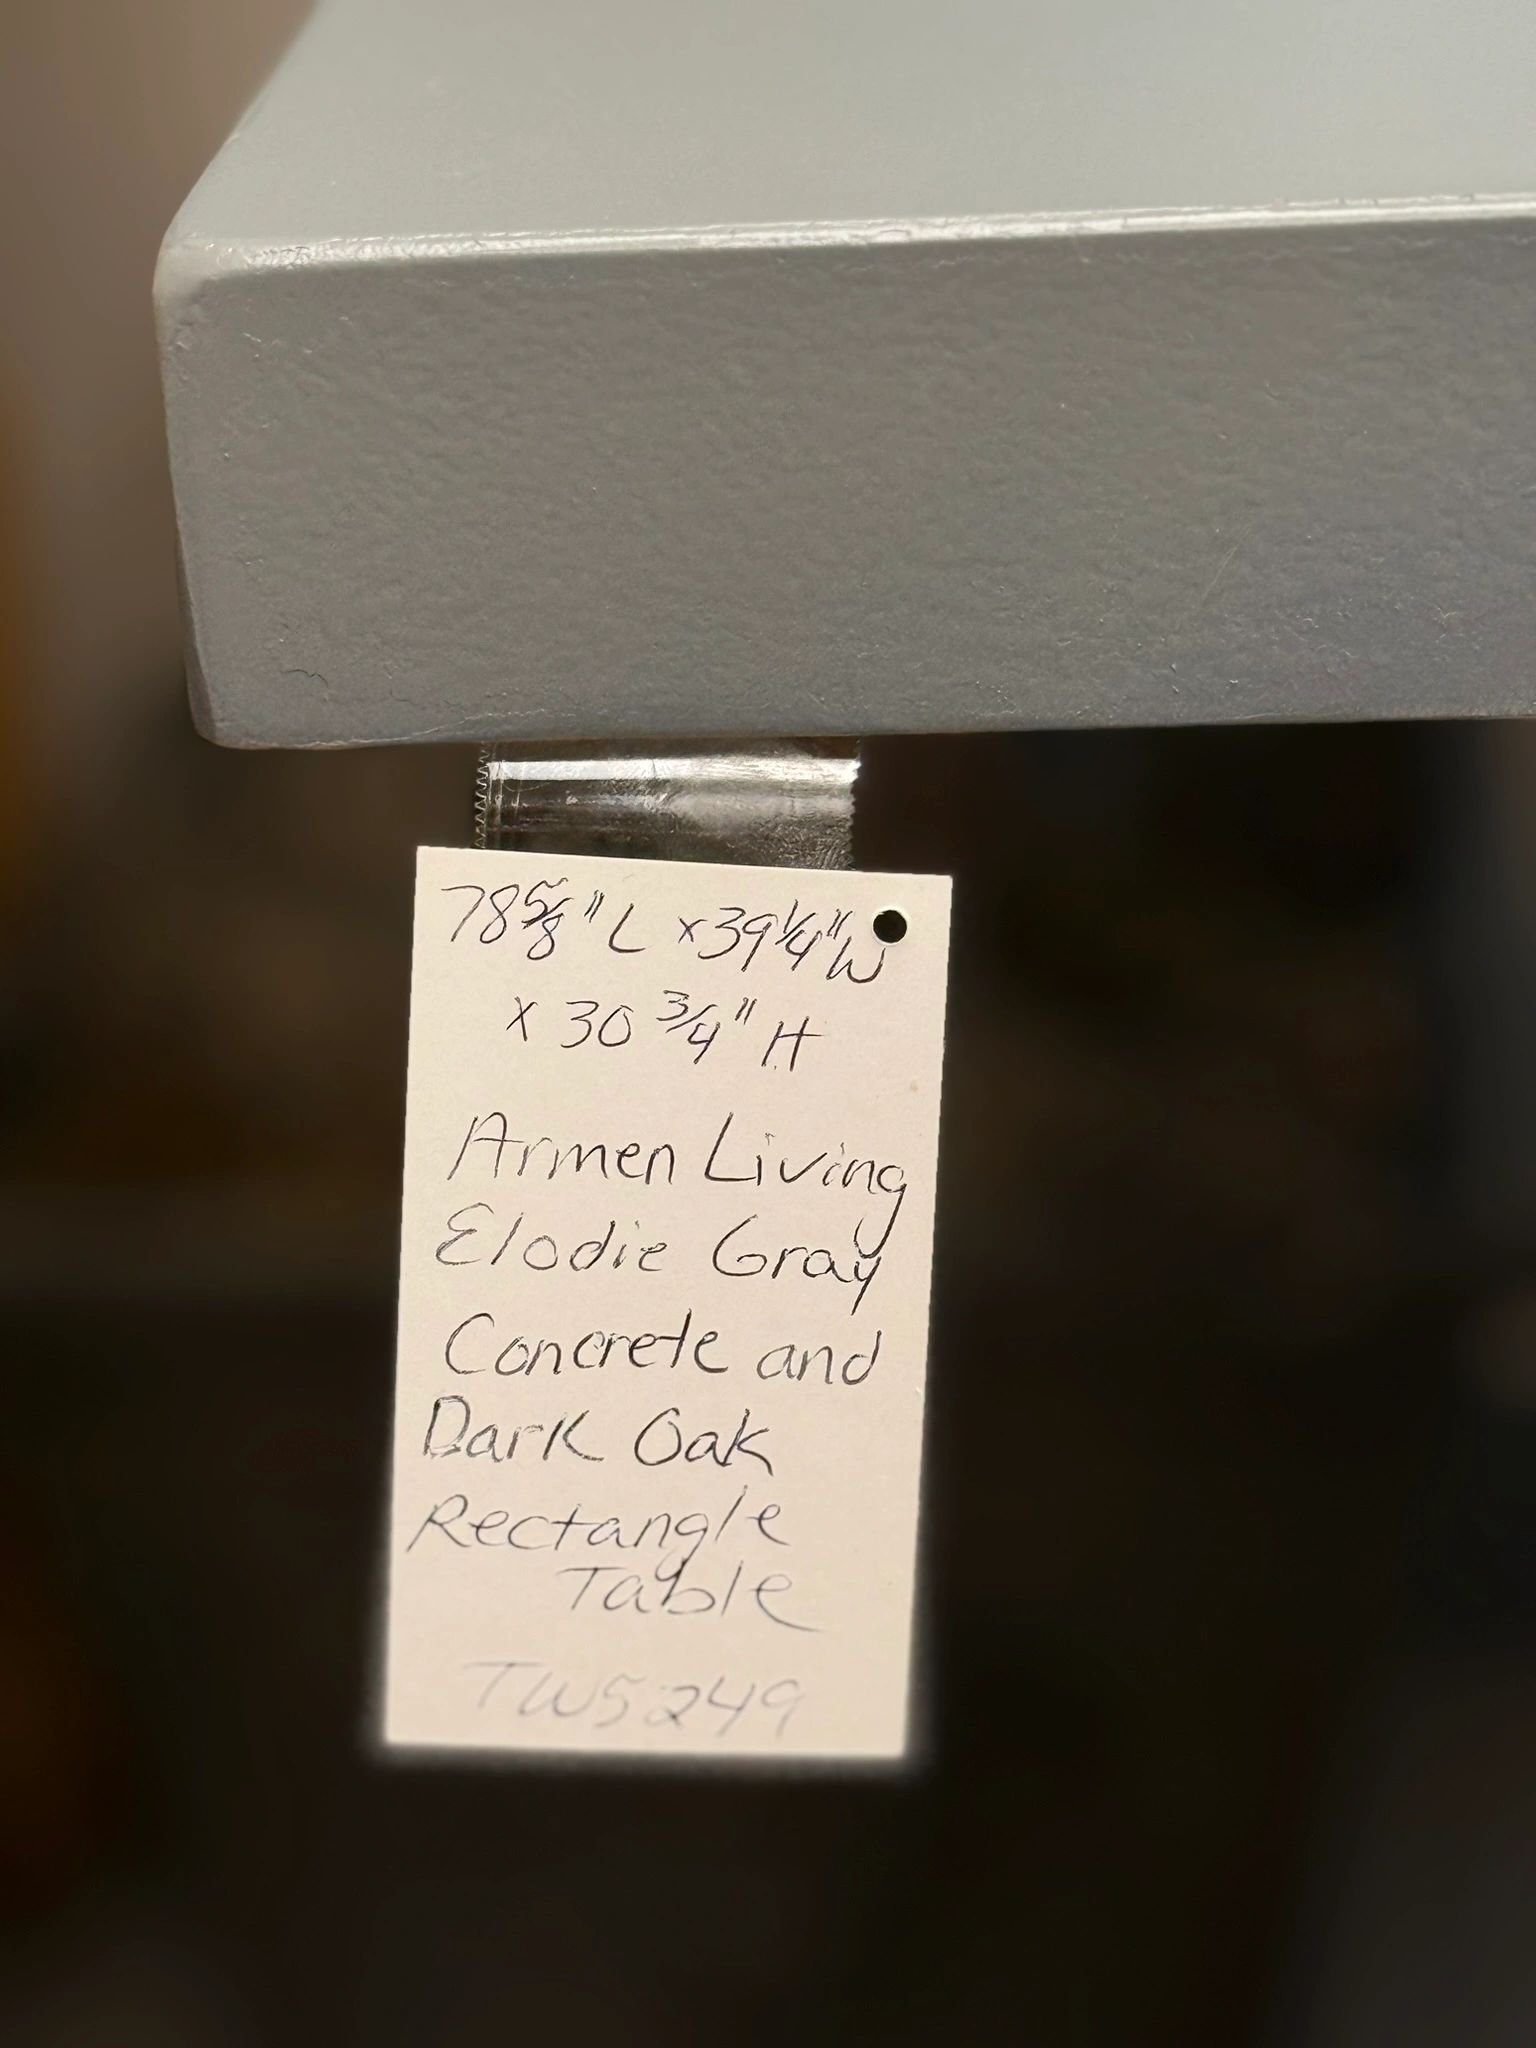 78 5/8" L x 39 1/4" W
x 30 3/4" H
Armen Living
Elodie Gray
Concrete and
Dark Oak
Rectangle
Table
TW5249